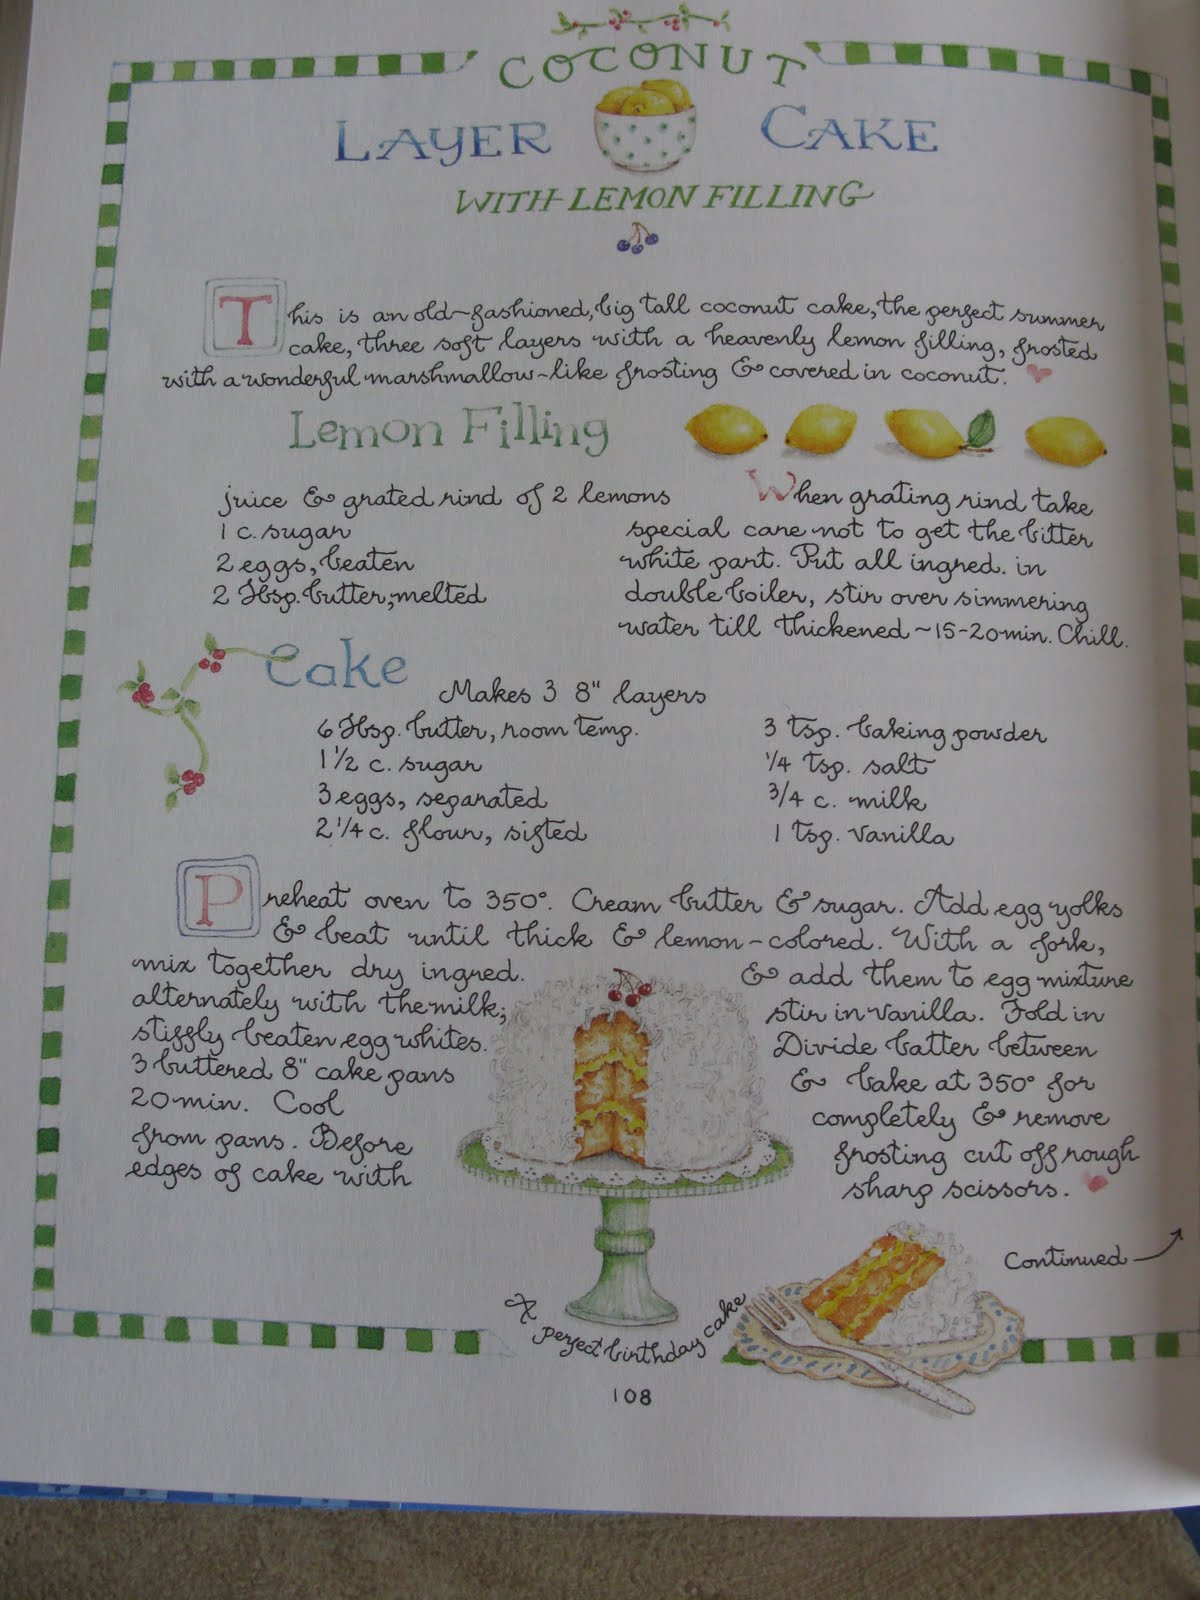 COCONUT
LAYER CAKE
WITH LEMON FILLING
This is an old~fashioned, big tall coconut cake, the perfect summer
cake, three soft layers with a heavenly lemon filling, frosted
with a wonderful marshmallow~like frosting & covered in coconut.
Lemon Filling
juice & grated rind of 2 lemons
1 c. sugar
2 eggs, beaten
2 Tbsp. butter, melted
When grating rind take
special care not to get the bitter
white part. Put all ingred. in
double boiler, stir over simmering
water till thickened ~15-20 min. Chill.
Cake
Makes 3 8" layers
6 Tbsp. butter, room temp.
1 1/2 c. sugar
3 eggs, separated
2 1/4 c. flour, sifted
3 tsp. baking powder
1/4 tsp. salt
3/4 c. milk
1 tsp. vanilla
Preheat oven to 350°. Cream butter & sugar. Add egg yolks
& beat until thick & lemon-colored. With a fork,
mix together dry ingred. & add them to egg mixture
alternately with the milk; stir in vanilla. Fold in
stiffly beaten egg whites. Divide batter between
3 buttered 8" cake pans & bake at 350° for
20 min. Cool completely & remove
from pans. Before frosting cut off rough
edges of cake with sharp scissors.
Continued
A perfect birthday cake
108